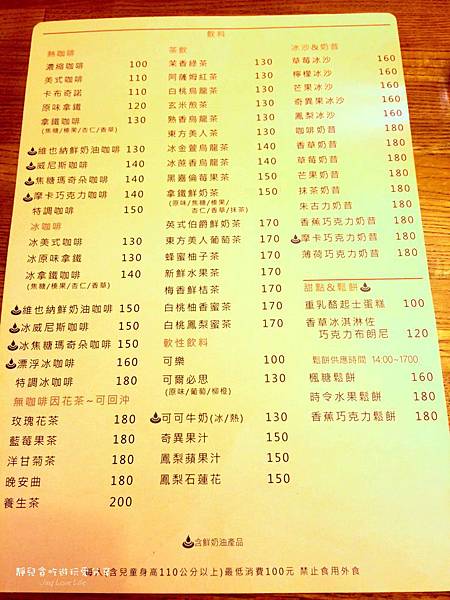 飲料
熱咖啡
濃縮咖啡 100
美式咖啡 110
卡布奇諾 110
原味拿鐵 120
拿鐵咖啡 130
(焦糖/榛果/杏仁/香草)
維也納鮮奶油咖啡 130
威尼斯咖啡 140
焦糖瑪奇朵咖啡 140
摩卡巧克力咖啡 140
特調咖啡 150
冰咖啡
冰美式咖啡 130
冰原味拿鐵 130
冰拿鐵咖啡 140
(焦糖/榛果/杏仁/香草)
維也納鮮奶油咖啡 150
冰威尼斯咖啡 150
冰焦糖瑪奇朵咖啡 150
漂浮冰咖啡 160
特調冰咖啡 180
無咖啡因花茶~可回沖
玫瑰花茶 180
藍莓果茶 180
洋甘菊茶 180
晚安曲 180
養生茶 200
茶飲
茉香綠茶 130
阿薩姆紅茶 130
白桃烏龍茶 130
玄米煎茶 130
熟香烏龍茶 130
東方美人茶 130
冰金萱烏龍茶 130
冰蔗香烏龍茶 130
黑嘉倫莓果茶 150
拿鐵鮮奶茶 150
(原味/焦糖/榛果/
杏仁/香草/抹茶)
英式伯爵鮮奶茶 170
東方美人葡萄茶 170
蜂蜜柚子茶 170
新鮮水果茶 170
梅香鮮桔茶 170
白桃柚香蜜茶 170
白桃鳳梨蜜茶 170
軟性飲料
可樂 100
可爾必思 130
(原味/葡萄/柳橙)
可可牛奶(冰/熱) 130
奇異果汁 150
鳳梨蘋果汁 150
鳳梨石蓮花 150
冰沙&奶昔
草莓冰沙 160
檸檬冰沙 160
芒果冰沙 160
奇異果冰沙 160
鳳梨冰沙 160
咖啡奶昔 180
香草奶昔 180
草莓奶昔 180
芒果奶昔 180
抹茶奶昔 180
朱古力奶昔 180
香蕉巧克力奶昔 180
摩卡巧克力奶昔 180
薄荷巧克力奶昔 180
甜點&鬆餅
重乳酪起士蛋糕 100
香草冰淇淋佐
巧克力布朗尼 120
鬆餅供應時間 14:00~1700
楓糖鬆餅 160
時令水果鬆餅 180
香蕉巧克力鬆餅 180
含鮮奶油產品
人(含兒童身高110公分以上)最低消費100元 禁止食用外食
Jing Love Life